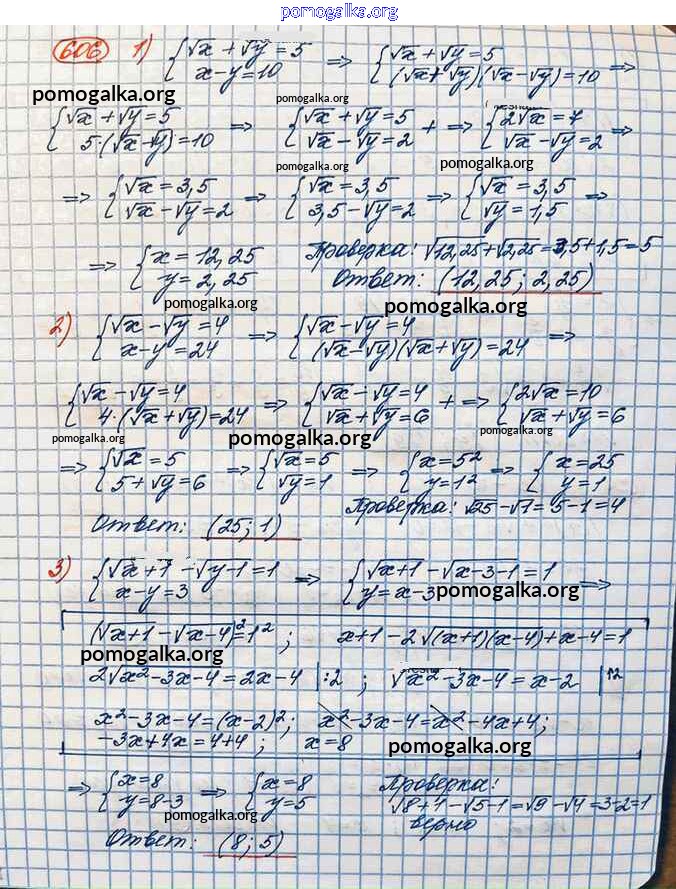 pomogalka.org
606 1) {√x + √y = 5 ⇒ {√x + √y = 5
x - y = 10 (√x + √y)(√x - √y) = 10 ⇒
pomogalka.org pomogalka.org
{√x + √y = 5 ⇒ {√x + √y = 5 + ⇒ {2√x = 7
5·(√x - √y) = 10 √x - √y = 2 √x - √y = 2 ⇒
pomogalka.org pomogalka.org
⇒ {√x = 3,5 ⇒ {√x = 3,5 ⇒ {√x = 3,5 ⇒
√x - √y = 2 3,5 - √y = 2 √y = 1,5
⇒ {x = 12,25 Проверка: √12,25 + √2,25 = 3,5 + 1,5 = 5
y = 2,25 Ответ: (12,25; 2,25)
pomogalka.org pomogalka.org
2) {√x - √y = 4 ⇒ {√x - √y = 4 ⇒
x - y = 24 (√x - √y)(√x + √y) = 24
{√x - √y = 4 ⇒ {√x - √y = 4 + ⇒ {2√x = 10
4·(√x + √y) = 24 √x + √y = 6 √x + √y = 6
pomogalka.org pomogalka.org pomogalka.org
⇒ {√x = 5 ⇒ {√x = 5 ⇒ {x = 5² ⇒ {x = 25
5 + √y = 6 √y = 1 y = 1² y = 1
Проверка: √25 - √1 = 5 - 1 = 4
Ответ: (25; 1)
3) {√x+1 - √y-1 = 1 ⇒ {√x+1 - √x-3-1 = 1
x - y = 3 y = x - 3 pomogalka.org ⇒
(√x+1 - √x-4)² = 1² ; x+1 - 2√(x+1)(x-4) + x-4 = 1
pomogalka.org
2√x²-3x-4 = 2x-4 |:2 ; √x²-3x-4 = x-2 |↑2
x²-3x-4 = (x-2)²; x²-3x-4 = x²-4x+4;
-3x+4x = 4+4 ; x = 8 pomogalka.org
⇒ {x = 8 ⇒ {x = 8 Проверка:
y = 8-3 y = 5 √8+1 - √5-1 = √9 - √4 = 3-2 = 1
pomogalka.org верно
Ответ: (8; 5)